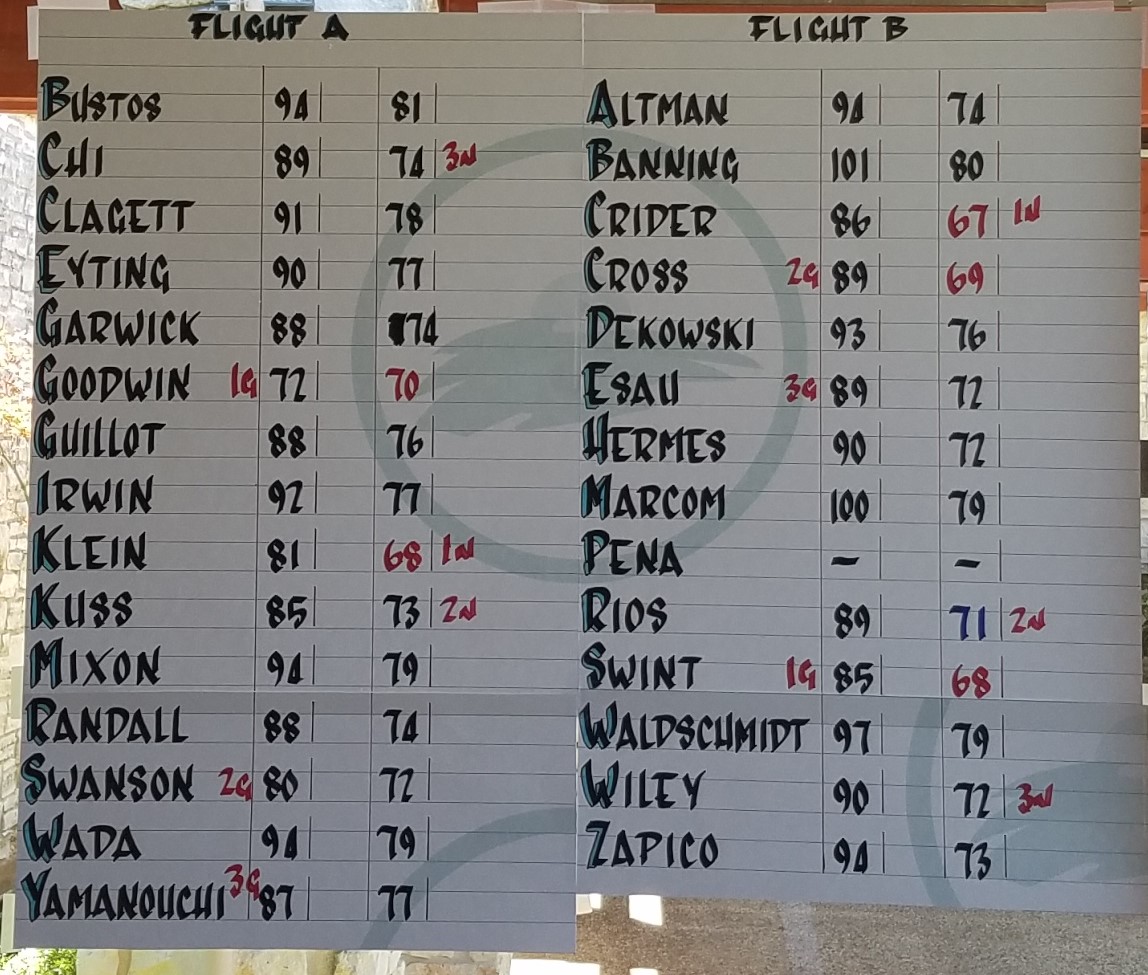 FLIGHT A
BUSTOS 94 81
CHI 89 74 3N
CLAGETT 91 78
EYTING 90 77
GARWICK 88 74
GOODWIN 1G 72 70
GUILLOT 88 76
IRWIN 92 77
KLEIN 81 68 1N
KUSS 85 73 2N
MIXON 94 79
RANDALL 88 74
SWANSON 2G 80 72
WADA 94 79
YAMANOUCHI 3G 87 77
FLIGHT B
ALTMAN 94 74
BANNING 101 80
CRIDER 86 67 1N
CROSS 2G 89 69
DEKOWSKI 93 76
ESAU 3G 89 72
HERMES 90 72
MARCOM 100 79
PENA - -
RIOS 89 71 2N
SWINT 1G 85 68
WALDSCHMIDT 97 79
WILEY 90 72 3N
ZAPICO 94 73